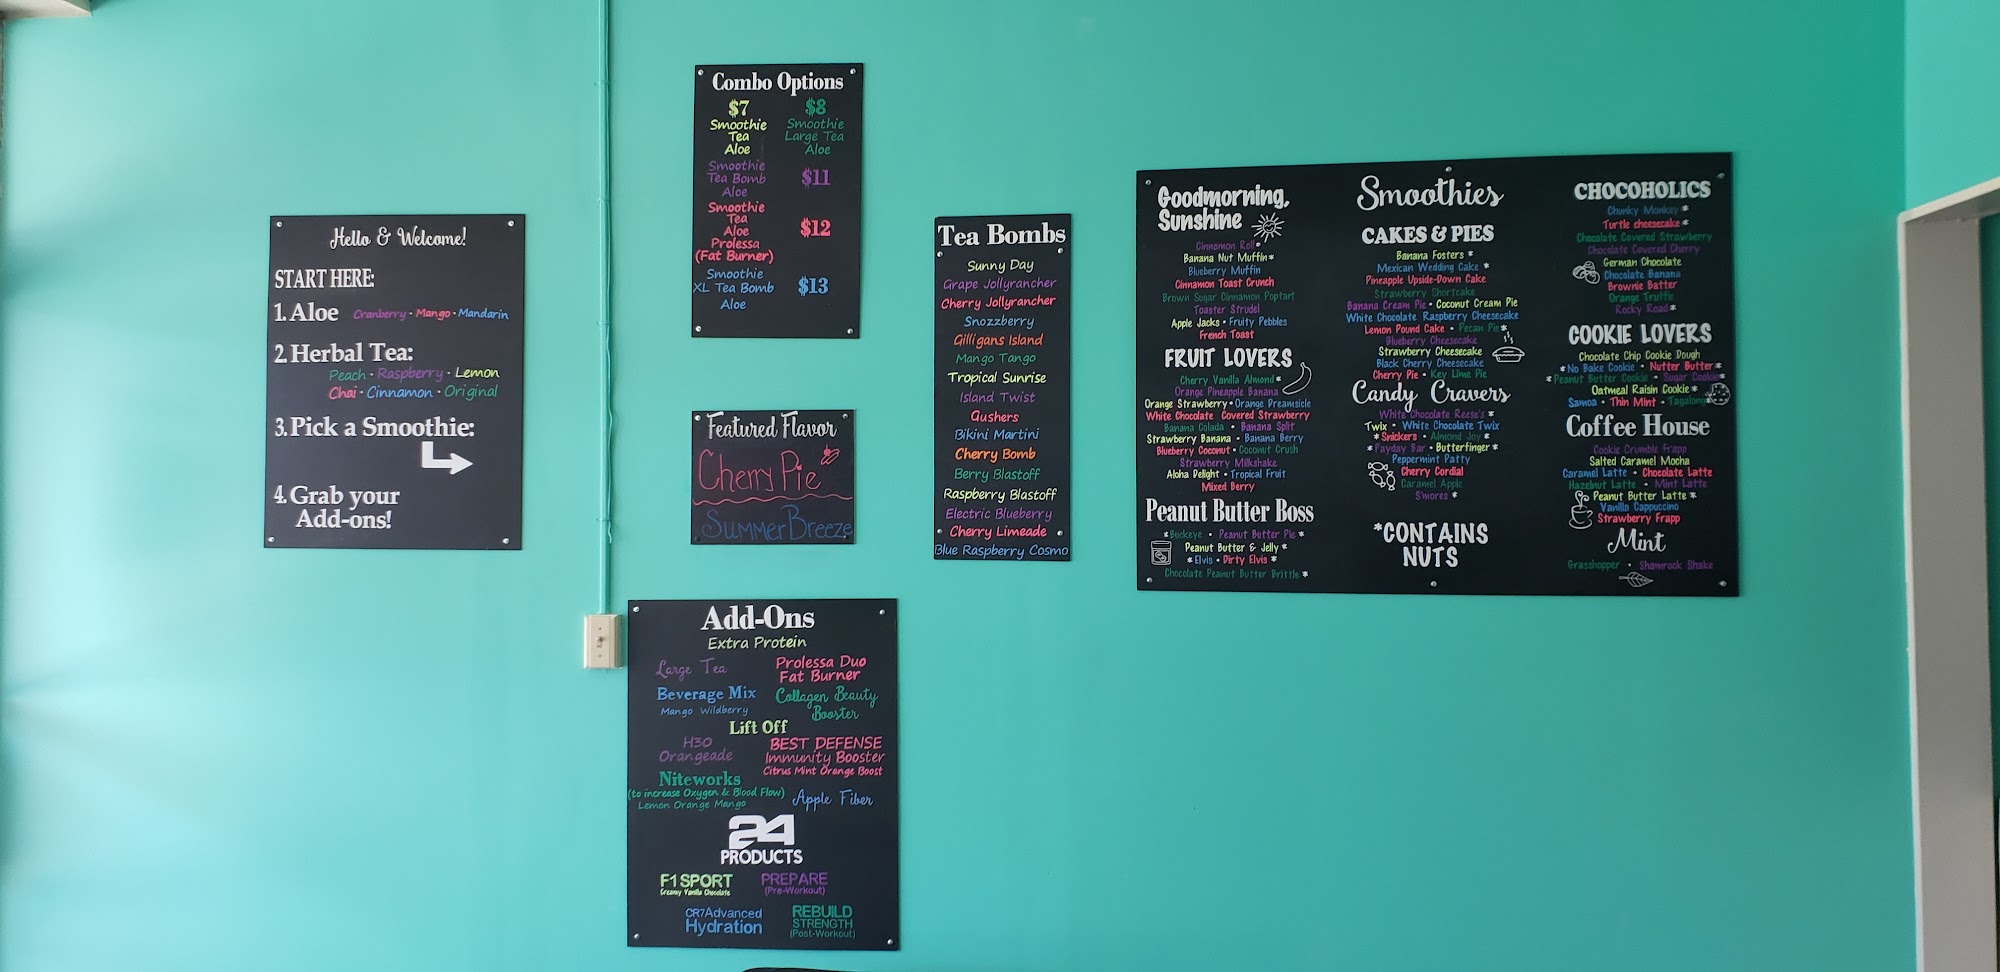 Hello & Welcome!
START HERE:
1. Aloe Cranberry • Mango • Mandarin
2. Herbal Tea:
Peach • Raspberry • Lemon
Chai • Cinnamon • Original
3. Pick a Smoothie:
4. Grab your
Add-ons!
Combo Options
$7 $8
Smoothie Smoothie
Tea Large Tea
Aloe Aloe
Smoothie
Tea Bomb $11
Aloe
Smoothie
Tea
Aloe $12
Prolessa
(Fat Burner)
Smoothie
XL Tea Bomb $13
Aloe
Featured Flavor
Cherry Pie
Summer Breeze
Add-Ons
Extra Protein
Large Tea
Prolessa Duo
Fat Burner
Beverage Mix
Mango Wildberry
Collagen Beauty
Booster
Lift Off
H30
Orangeade
BEST DEFENSE
Immunity Booster
Citrus Mint Orange Boost
Niteworks
(to increase Oxygen & Blood Flow)
Lemon Orange Mango
Apple Fiber
24
PRODUCTS
F1 SPORT
Creamy Vanilla Chocolate
PREPARE
(Pre-Workout)
CR7Advanced
Hydration
REBUILD
STRENGTH
(Post-Workout)
Tea Bombs
Sunny Day
Grape Jollyrancher
Cherry Jollyrancher
Snozzberry
Gilligans Island
Mango Tango
Tropical Sunrise
Island Twist
Gushers
Bikini Martini
Cherry Bomb
Berry Blastoff
Raspberry Blastoff
Electric Blueberry
Cherry Limeade
Blue Raspberry Cosmo
Goodmorning,
Sunshine
Cinnamon Roll*
Banana Nut Muffin*
Blueberry Muffin
Cinnamon Toast Crunch
Brown Sugar Cinnamon Poptart
Toaster Strudel
Apple Jacks • Fruity Pebbles
French Toast
FRUIT LOVERS
Cherry Vanilla Almond*
Orange Pineapple Banana
Orange Strawberry • Orange Dreamsicle
White Chocolate Covered Strawberry
Banana Colada • Banana Split
Strawberry Banana • Banana Berry
Blueberry Coconut • Coconut Crush
Strawberry Milkshake
Aloha Delight • Tropical Fruit
Mixed Berry
Peanut Butter Boss
*Buckeye • Peanut Butter Pie*
Peanut Butter & Jelly*
*Elvis • Dirty Elvis*
Chocolate Peanut Butter Brittle*
Smoothies
CAKES & PIES
Banana Fosters*
Mexican Wedding Cake*
Pineapple Upside-Down Cake
Strawberry Shortcake
Banana Cream Pie • Coconut Cream Pie
White Chocolate Raspberry Cheesecake
Lemon Pound Cake • Pecan Pie*
Blueberry Cheesecake
Strawberry Cheesecake
Black Cherry Cheesecake
Cherry Pie • Key Lime Pie
Candy Cravers
White Chocolate Reese's*
Twix • White Chocolate Twix
*Snickers • Almond Joy*
*Payday Bar • Butterfinger*
Peppermint Patty
Cherry Cordial
Caramel Apple
S'mores*
*CONTAINS
NUTS
CHOCOHOLICS
Chunky Monkey*
Turtle cheesecake*
Chocolate Covered Strawberry
Chocolate Covered Cherry
German Chocolate
Chocolate Banana
Brownie Batter
Orange Truffle
Rocky Road*
COOKIE LOVERS
Chocolate Chip Cookie Dough
*No Bake Cookie • Nutter Butter*
*Peanut Butter Cookie • Sugar Cookie*
Oatmeal Raisin Cookie*
Samoa • Thin Mint • Tagalong*
Coffee House
Cookie Crumble Frapp
Salted Caramel Mocha
Caramel Latte • Chocolate Latte
Hazelnut Latte • Mint Latte
*Peanut Butter Latte*
Vanilla Cappuccino
Strawberry Frapp
Mint
Grasshopper • Shamrock Shake